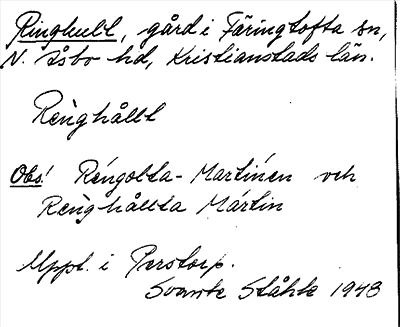 Ringhult, gård i Färingtofta sn,
N. Åsbo hd, Kristianstads län.
Rèŋghållt
Obs! Réngolta-Martínen och
Rèŋghållta Mártin
Uppt. i Perstorp.
Svante Ståhle 1948